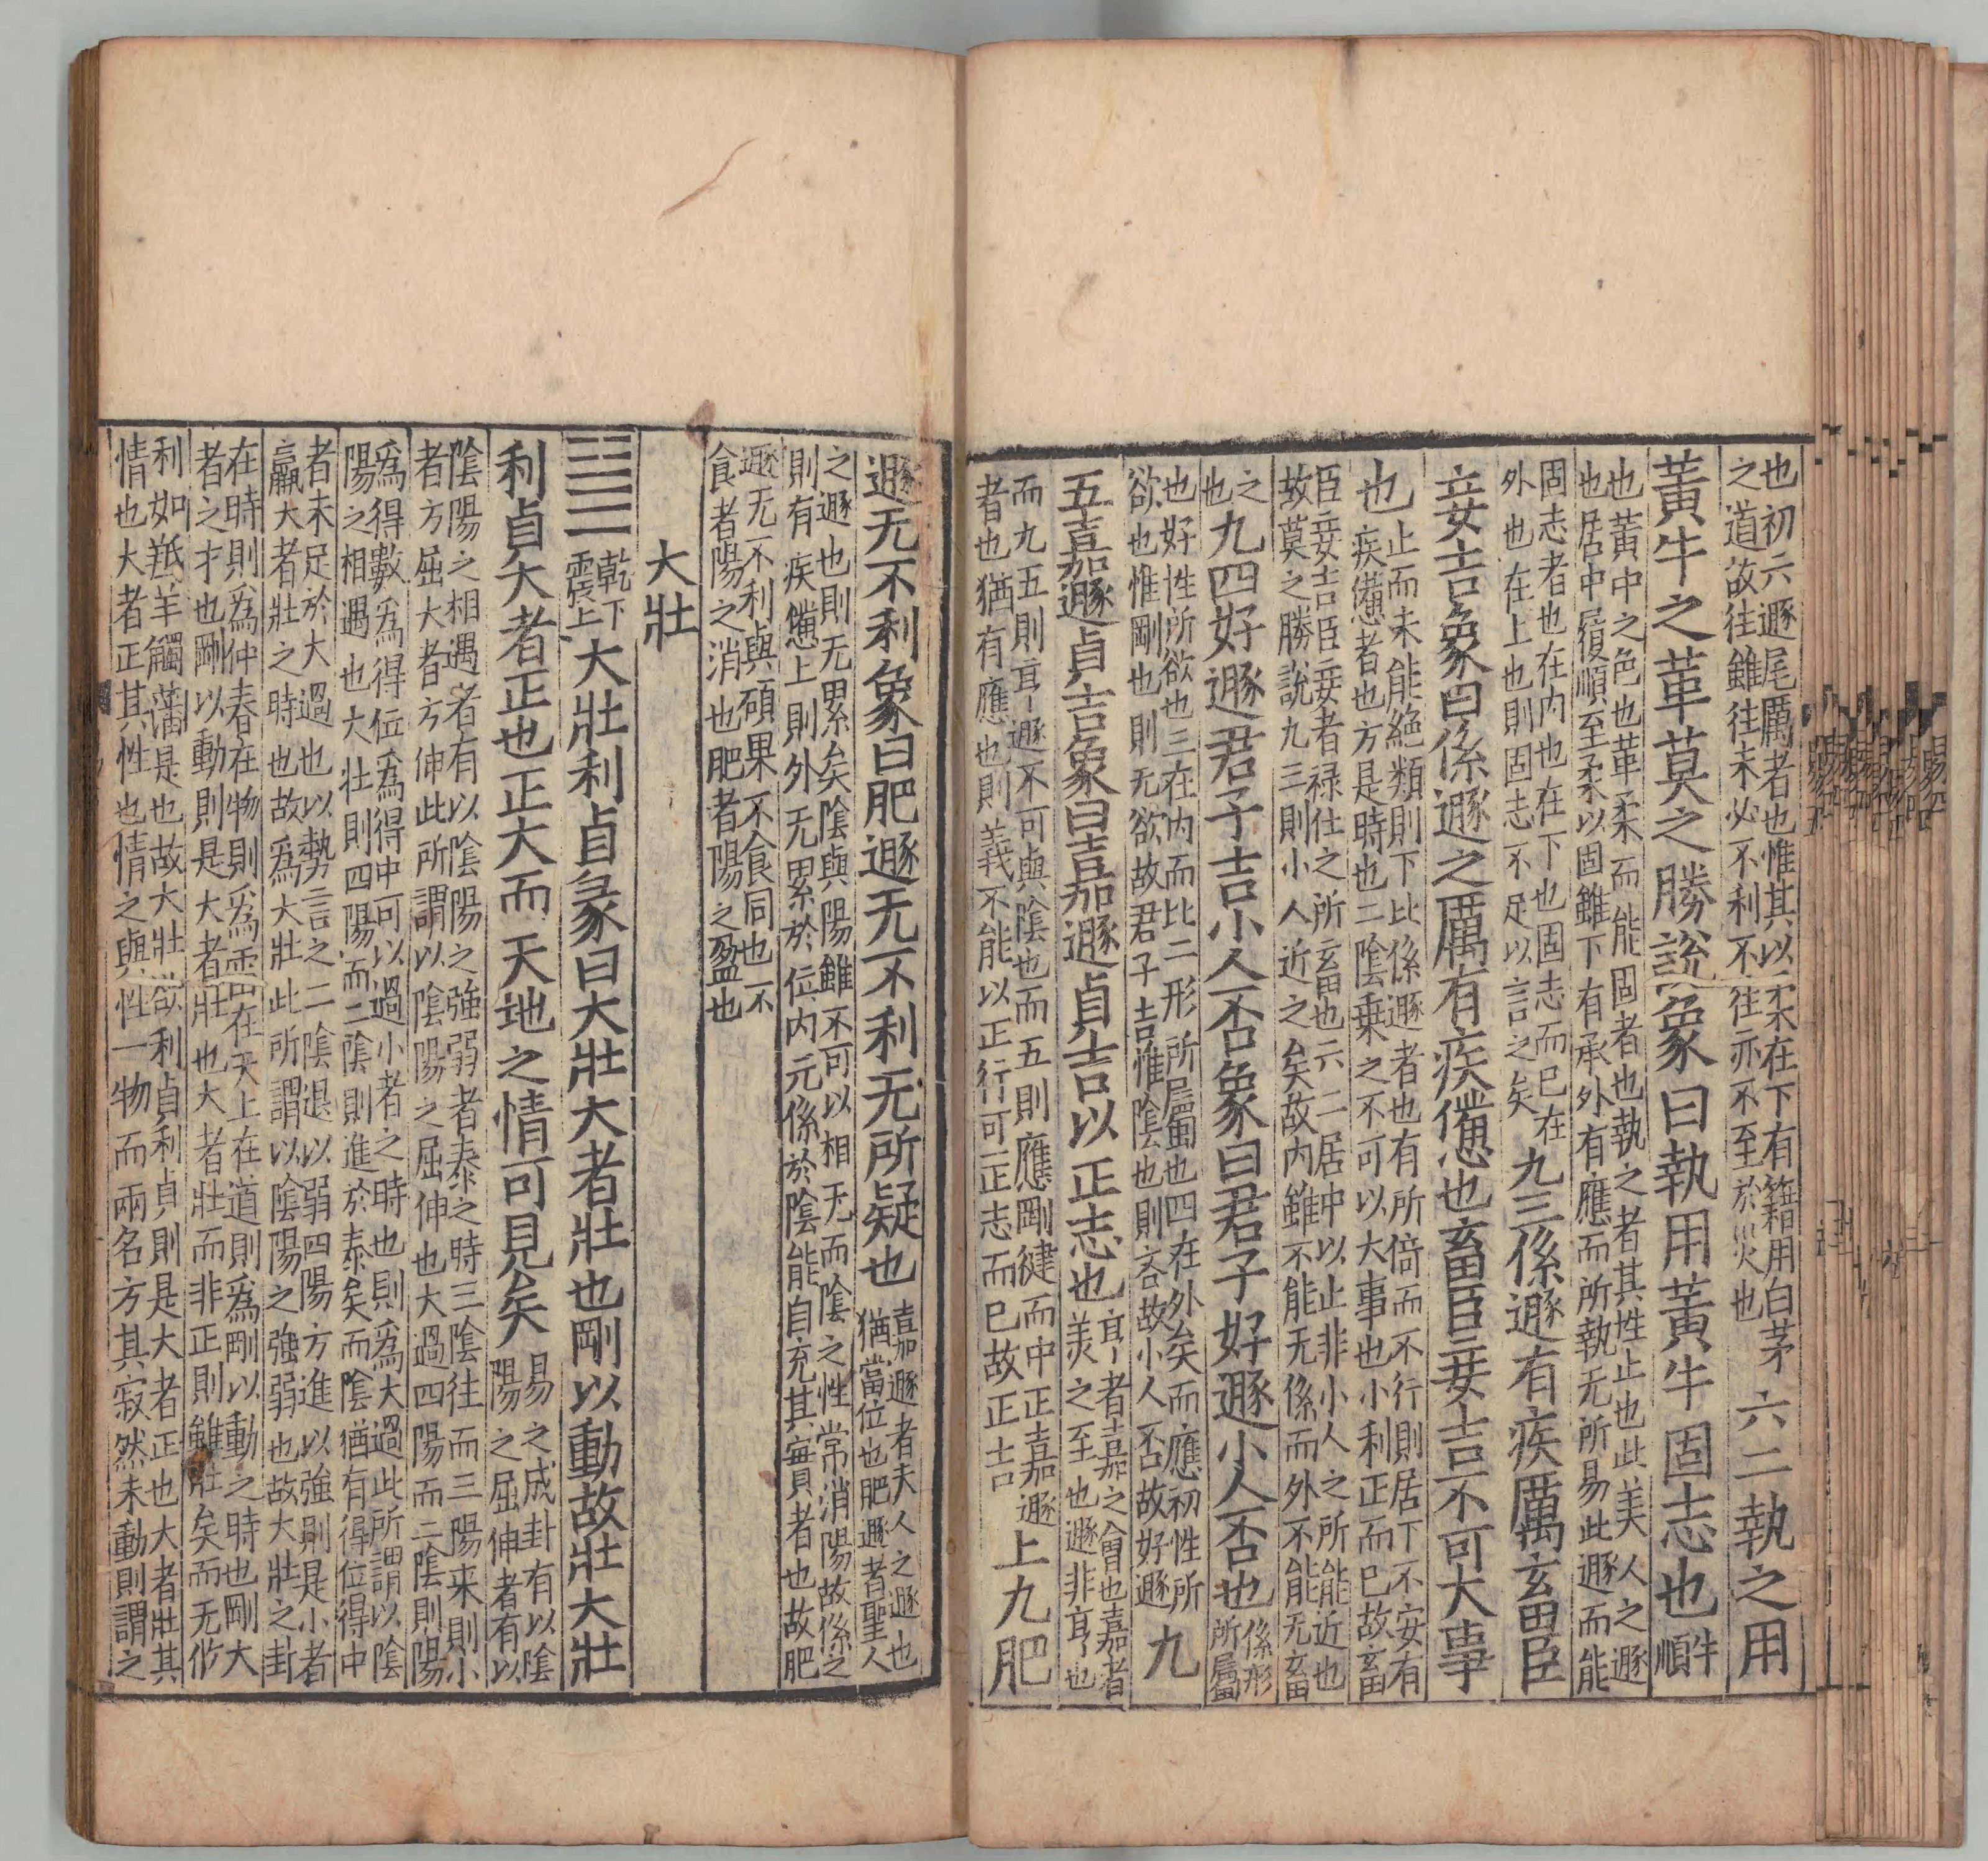 也初六遯尾厲者也惟其以柔在下有籍用白茅
之道故往雖往未必不利不往亦不至於災也
六二執之用
黃牛之革莫之勝說象曰執用黃牛固志也
牛
順
也黃中之色也革柔而能固者也執之者其性止也此美人之遯
也居中履順至柔以固雖下有承外有應而所執无所易此遯而能
固志者也在内也在下也固志而已在
外也在上也則固志不足以言之矣
九三係遯有疾厲畜臣
妾吉象曰係遯之厲有疾憊也畜臣妾吉不可大事
也
止而未能絶類則下比係遯者也有所倚而不行則居下不安有
疾憊者也方是時也二陰乗之不可以大事也小利正而已故畜
臣妾吉臣妾者禄仕之所畜也六二居中以止非小人之所能近也
故莫之勝說九三則小人近之矣故内雖不能无係而外不能无畜
之
也
九四好遯君子吉小人否象曰君子好遯小人否也
係形
所屬
也好性所欲也三在内而比二形所屬也四在外矣而應初性所
欲也惟剛也則无欲故君子吉惟陰也則吝故小人否故好遯
九
五嘉遯貞吉象曰嘉遯貞吉以正志也
亨者嘉之會也嘉者
羙之至也遯非亨也
而九五則亨遯不可與陰也而五則應剛健而中正嘉遯
者也猶有應也則義不能以正行可正志而已故正吉
上九肥
遯无不利象曰肥遯无不利无所疑也
嘉遯者夫人之遯也
猶當位也肥遯者聖人
之遯也則无累矣陰與陽雖不可以相无而陰之性常消陽故係之
則有疾憊上則外无累於位内元係於陰能自充其實者也故肥
遯无不利與碩果不食同也不
食者陽之消也肥者陽之盈也
大壯
乾下
震上
大壯利貞彖曰大壯大者壯也剛以動故壯大壯
利貞大者正也正大而天地之情可見矣
易之成卦有以陰
陽之屈伸者有以
陰陽之相遇者有以陰陽之強弱者泰之時三陰往而三陽来則小
者方屈大者方伸此所謂以陰陽之屈伸也大過四陽而二陰則陽
爲得數爲得位爲得中可以過小者之時也則爲大過此所謂以陰
陽之相遇也大壯則四陽而二陰則進於泰矣而陰猶有得位得中
者未足於大過也以勢言之二陰退以弱四陽方進以強則是小者
羸大者壯之時也故爲大壯此所謂以陰陽之強弱也故大壯之卦
在時則爲仲春在物則爲雷在天上在道則爲剛以動之時也剛大
者之才也剛以動則是大者壯也大者壯而非正則雖壯矣而无作
利如羝羊觸藩是也故大壯欲利貞利貞則是大者正也大者壯其
情也大者正其性也情之與性一物而兩名方其寂然未動則謂之